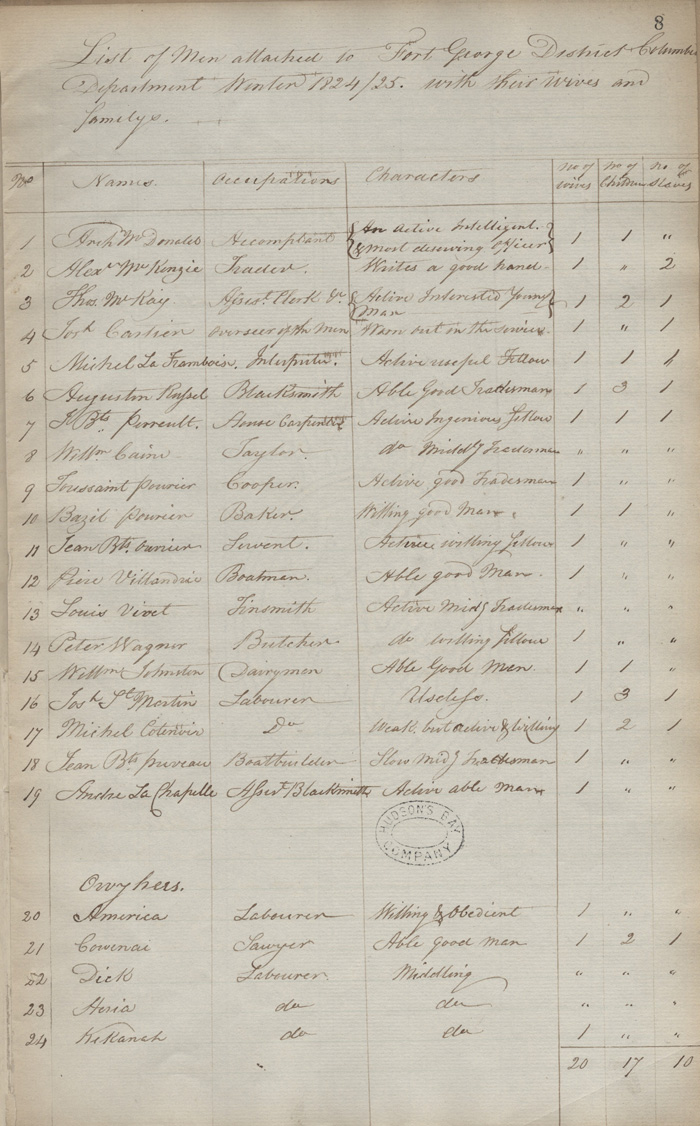 8
List of Men attached to Fort George District Columbia
Department Winter 1824/25. with their Wives and
familys.
No Names. Occupations Characters No of wives No of Children No of Slaves
1 Archd McDonald Accomptant An Active Intelligent. & most deserving Officer 1 1 "
2 Alexr McKenzie Trader. Writes a good hand 1 " 2
3 Thos. McKay Assist. Clerk &c Active Interested Young Man 1 2 1
4 Josh Cartier overseer of the Men Worn out in the service. 1 " 1
5 Michel La Frambois. Interpreter. Active useful Fellow 1 1 1
6 Augustin Russel Blacksmith Able Good Tradesman 1 3 1
7 J Bts Perrault. House Carpenter Active Ingenious fellow 1 1 1
8 Willm Caine Taylor. do Middg Tradesman " " "
9 Toussaint Pourier Cooper. Active good Tradesman 1 " "
10 Bazil Pourier Baker. Willing good Man. 1 1 "
11 Jean Bts Servent. Active willing fellow 1 " "
12 Villandrie Boatman. Able good Man. 1 " "
13 Louis Vivet Tinsmith Active Midg Tradesman " " "
14 Peter Wagner Butcher do willing fellow 1 " "
15 Willm Johnston Dairyman Able Good Man. 1 1 "
16 Josh St Martin Labourer Useless. 1 3 1
17 Michel Cotenoir Do Weak but active & willing 1 2 1
18 Jean Bts Boatbuilder Slow Midg Tradesman 1 " "
19 Andre La Chapelle Assist Blacksmith Active able Man 1 " "
HUDSON'S BAY COMPANY
Owyhees.
20 America Labourer Willing & Obedient 1 " "
21 Cowenai Sawyer Able good man 1 2 1
22 Dick Labourer Middling " " "
23 do do " " "
24 Kekanah do do 1 " "
20 17 10